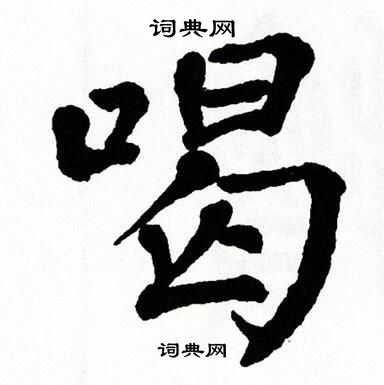 词典网
喝
词典网